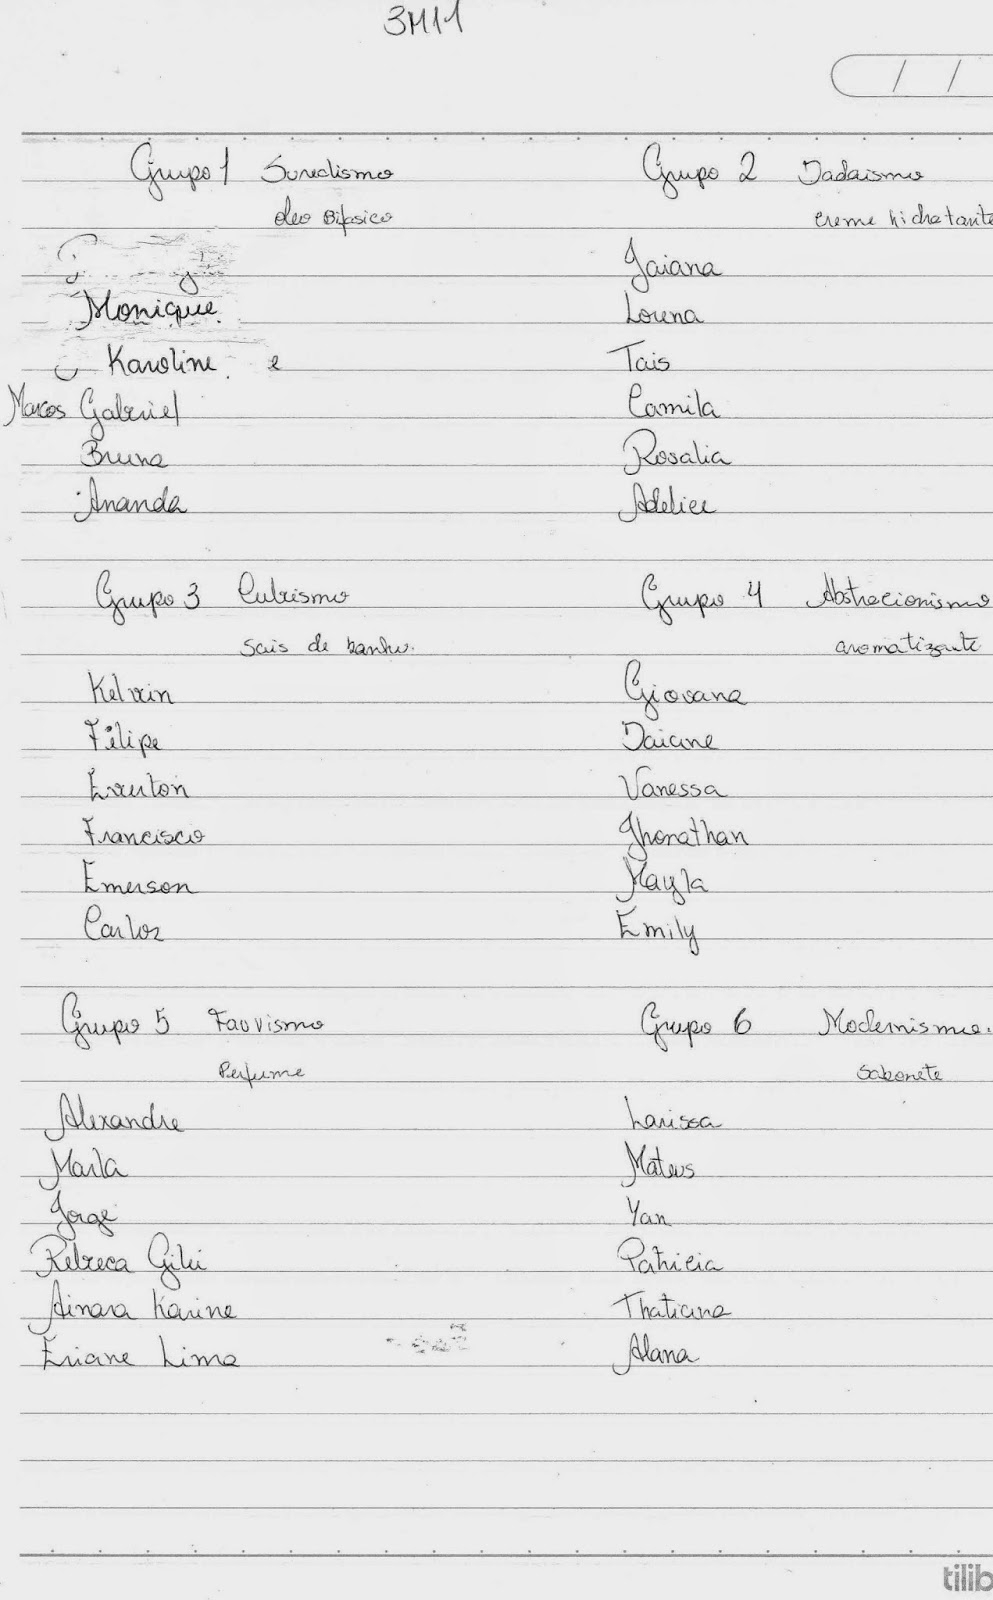 3M11
/ /
Grupo 1 Surealismo
oleo Bifasico
Monique
Karoline e
Marcos Gabriel
Bruna
Ananda
Grupo 2 Dadaismo
creme hidratante
Jaiana
Lorena
Tais
Camila
Rosalia
Adelice
Grupo 3 Cubismo
sais de banho.
Kelvin
Filipe
Everton
Francisco
Emerson
Carlos
Grupo 4 Abstracionismo
aromatizante
Giovana
Daiane
Vanessa
Jhonathan
Mayla
Emily
Grupo 5 Fauvismo
Perfume
Alexandre
Marla
Jorge
Rebeca
Ainara Karine
Eriane Lima
Grupo 6 Modernismo.
sabonete
Larissa
Mateus
Yan
Patricia
Thatiana
Alana
tilib